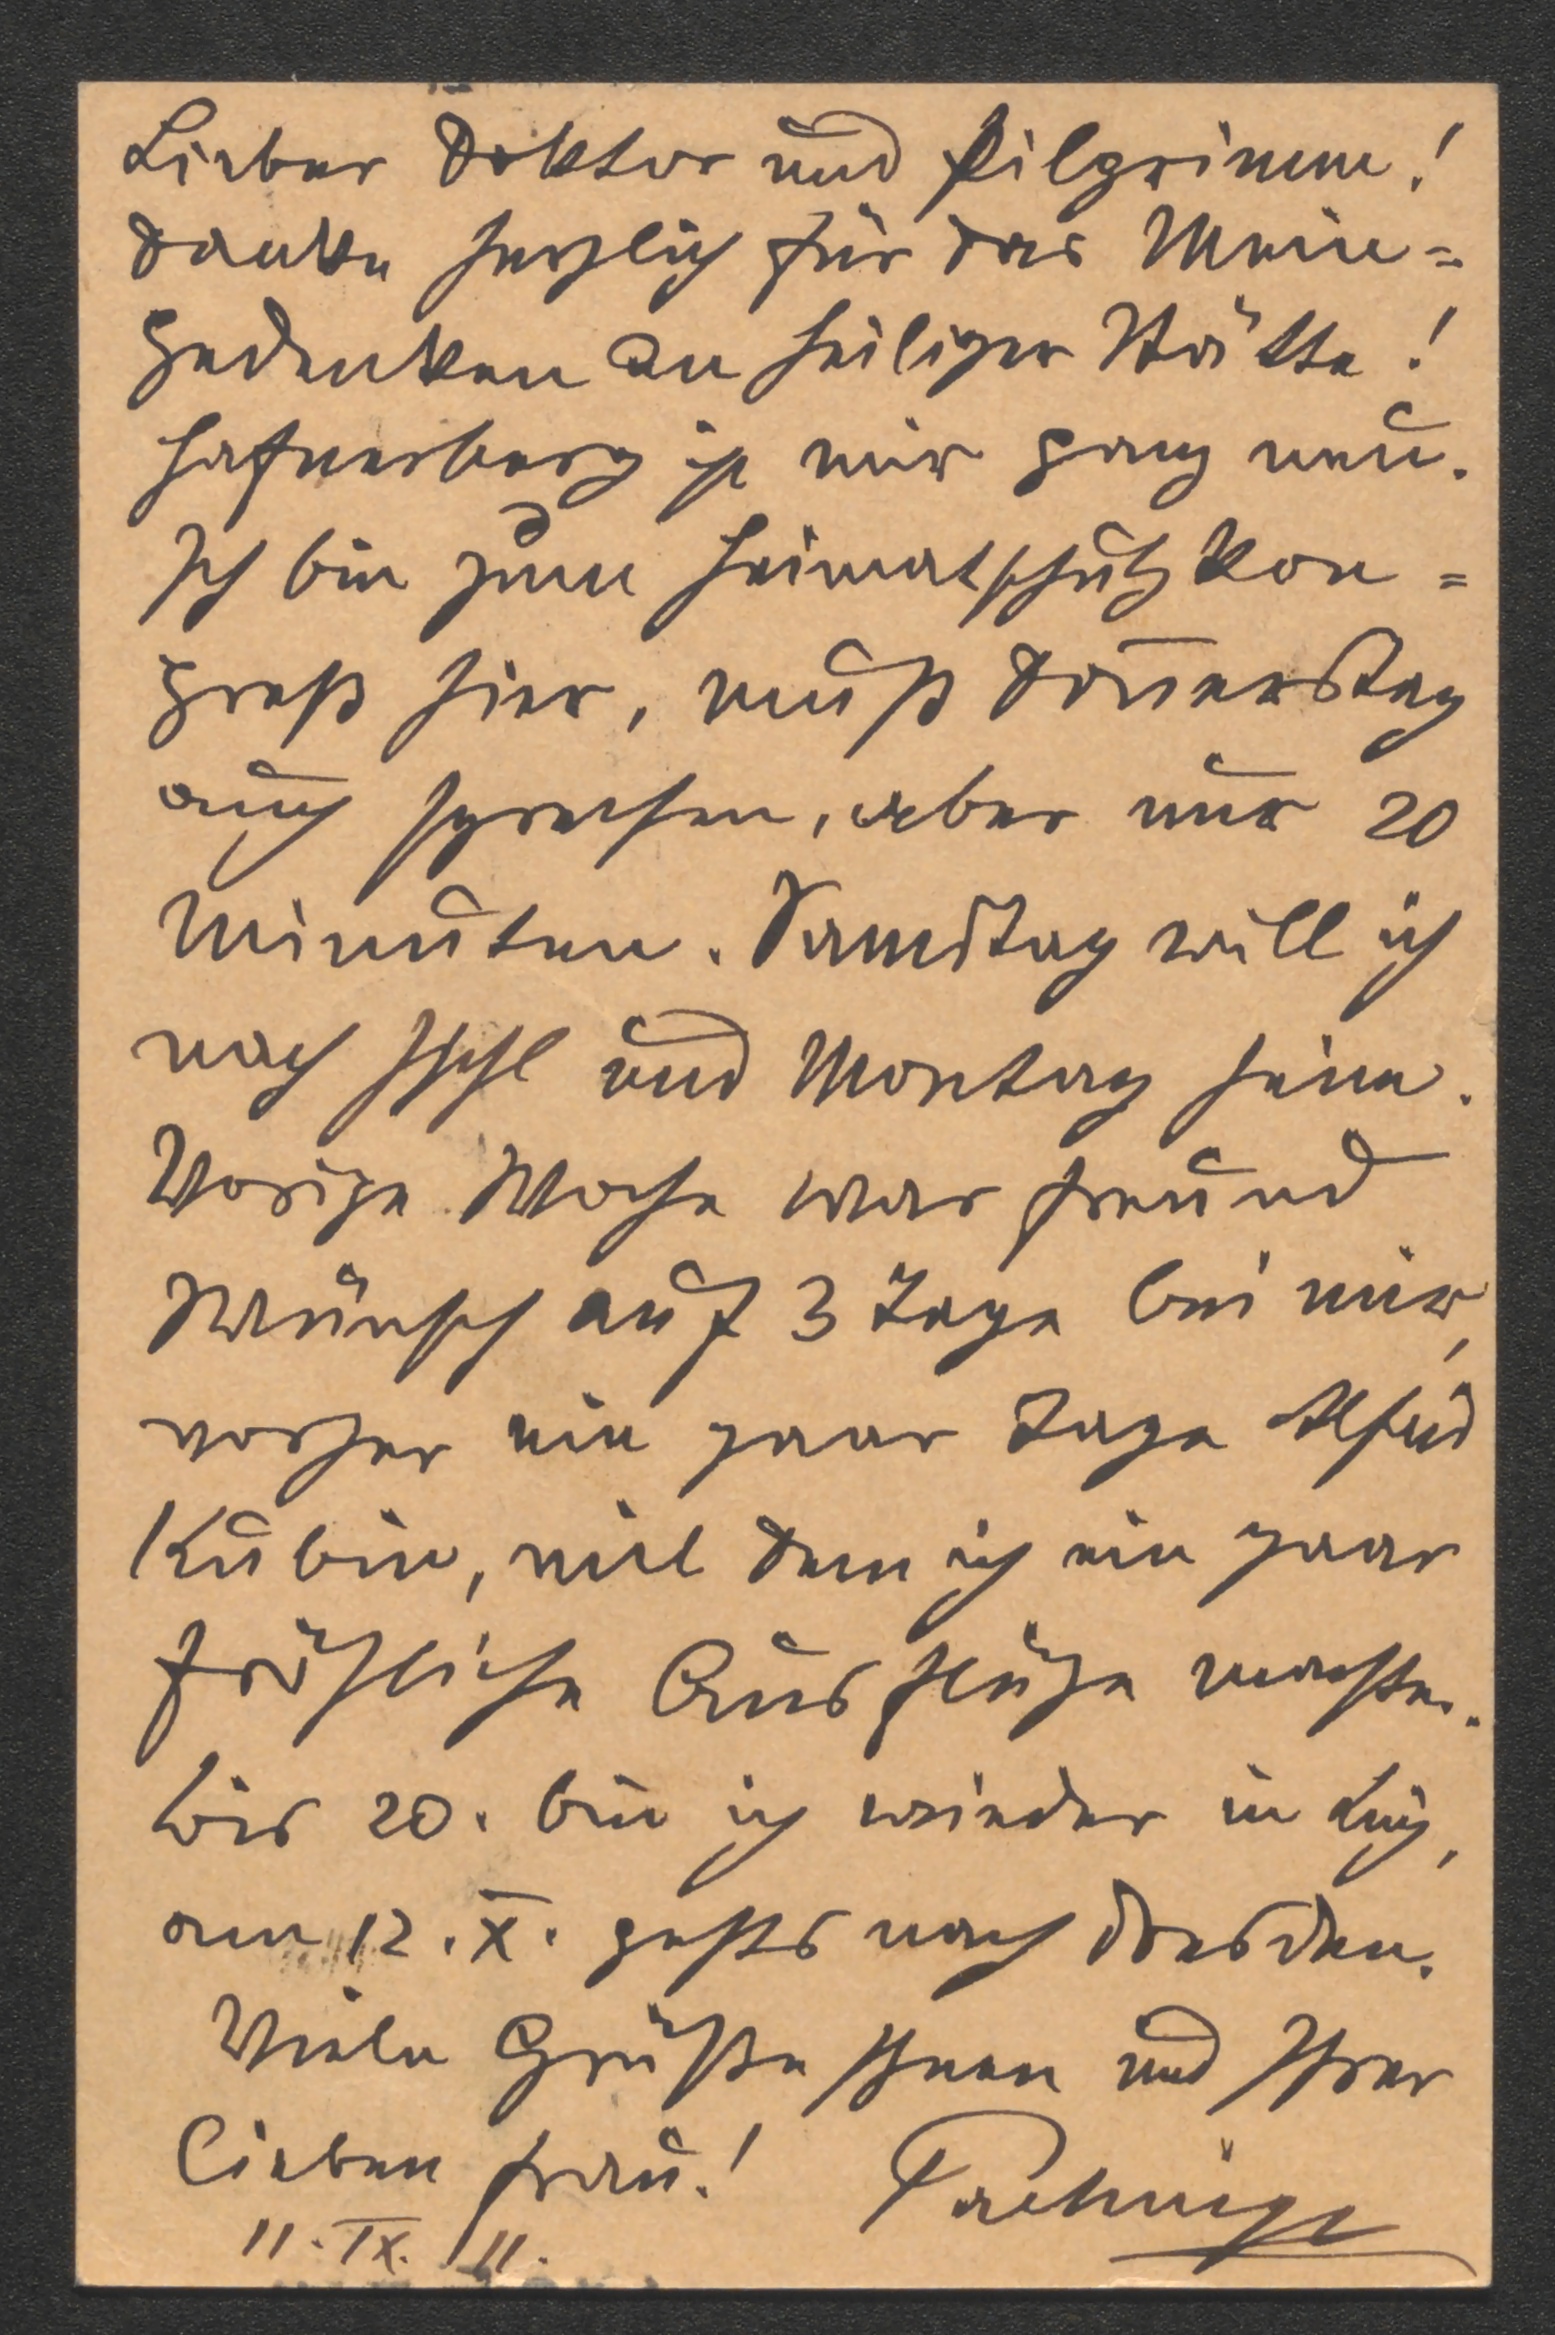 Lieber Doktor und Pilgrimm!
Danke herzlich für das Mein=
gedenken an heiliger Stätte!
Hafnerberg ist mir ganz neu.
Ich bin zum Heimatschutzkon=
greß hier, muß Don̄erstag
auch sprechen, aber nur 20
Minuten. Samstag will ich
nach Ischl und Montag heim.
Vorige Woche war Freund
Wünsch auf 3 Tage bei mir,
vorher ein paar Tage Alfred
Kubin, mit dem ich ein paar
fröhliche Ausflüge machte.
Bis 20. bin ich wieder in Linz,
am 12. X. gehts nach Dresden.
Viele Grüße Ihnen und Ihrer
lieben Frau!
11. IX. 11.